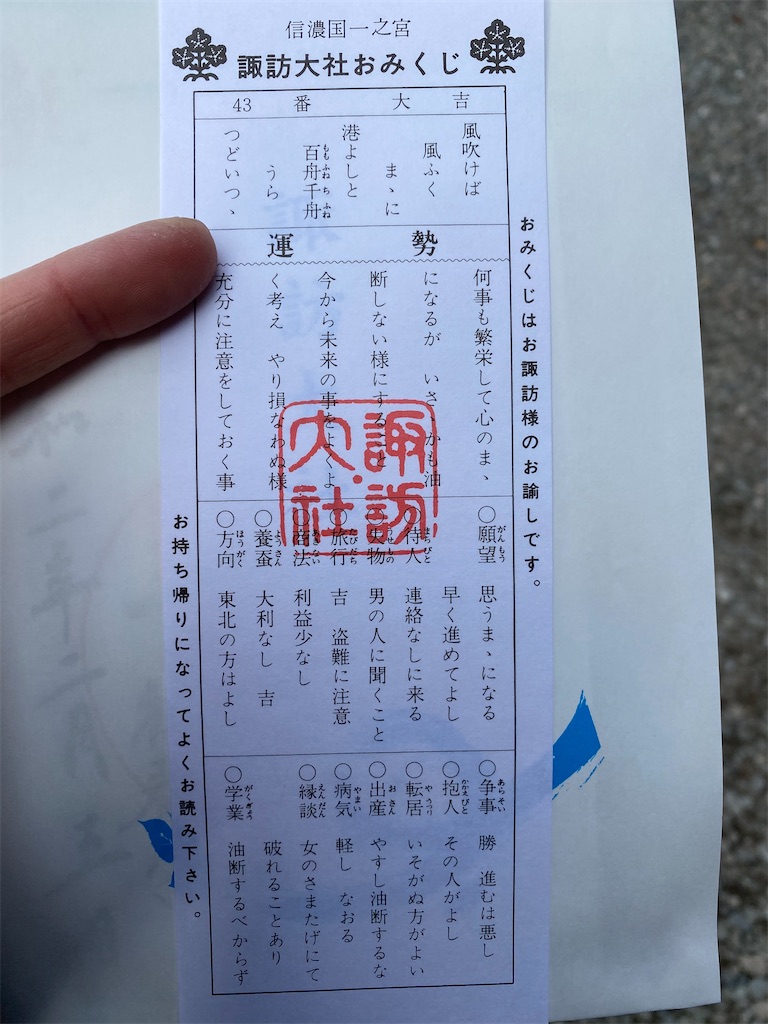 信濃国一之宮
諏訪大社おみくじ
43 番 大 吉
風吹けば
風ふく
まゝに
港よしと
百舟千舟
ももふねちふね
うら
つどいつゝ
運 勢
何事も繁栄して心のまゝ
になるが いさゝかも油
断しない様にすること
今から未来の事をよくよ
く考え やり損なわぬ様
充分に注意をしておく事
○願望 がんもう 思うまゝになる
早く進めてよし
○待人 まちびと 連絡なしに来る
○失物 うせもの 男の人に聞くこと
○旅行 たびだち 吉 盗難に注意
○商法 あきない 利益少なし
○養蚕 ようさん 大利なし 吉
○方向 ほうがく 東北の方はよし
○争事 あらそい 勝 進むは悪し
○抱人 かかえびと その人がよし
○転居 やうつり いそがぬ方がよい
○出産 おさん やすし油断するな
○病気 やまい 軽し なおる
○縁談 えんだん 女のさまたげにて
破れることあり
○学業 がくぎょう 油断するべからず
おみくじはお諏訪様のお諭しです。
お持ち帰りになってよくお読み下さい。
諏訪
大社